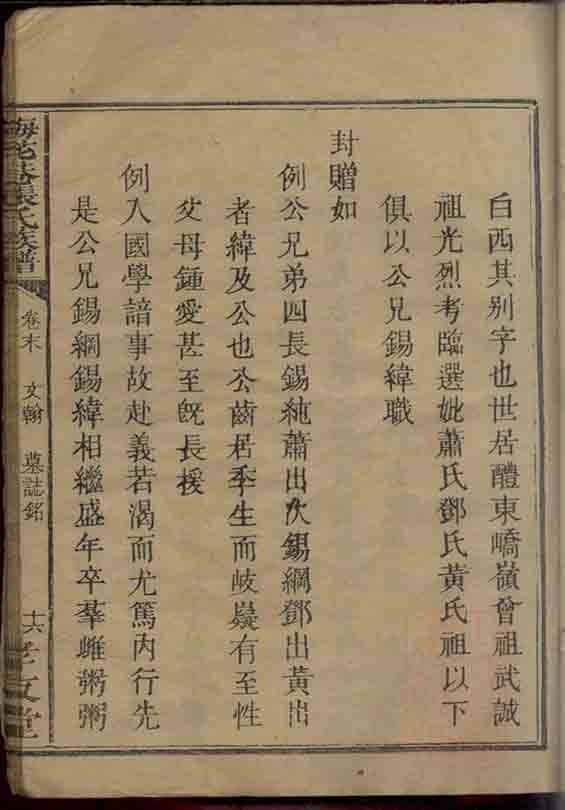 白西其别字也世居醴東嶠嶺曾祖武誠
祖光烈考臨選妣蕭氏鄧氏黄氏祖以下
俱以公兄錫緯職
封贈如
例公兄弟四長錫純蕭出次錫綱鄧出黄出
者緯及公也公齒居季生而岐嶷有至性
父母鍾愛甚至旣長援
例入國學諳事故赴義若渴而尤篤内行先
是公兄錫綱錫緯相繼盛年卒羣雌粥粥
張氏族譜
卷末 文翰 墓誌銘
十六
文堂